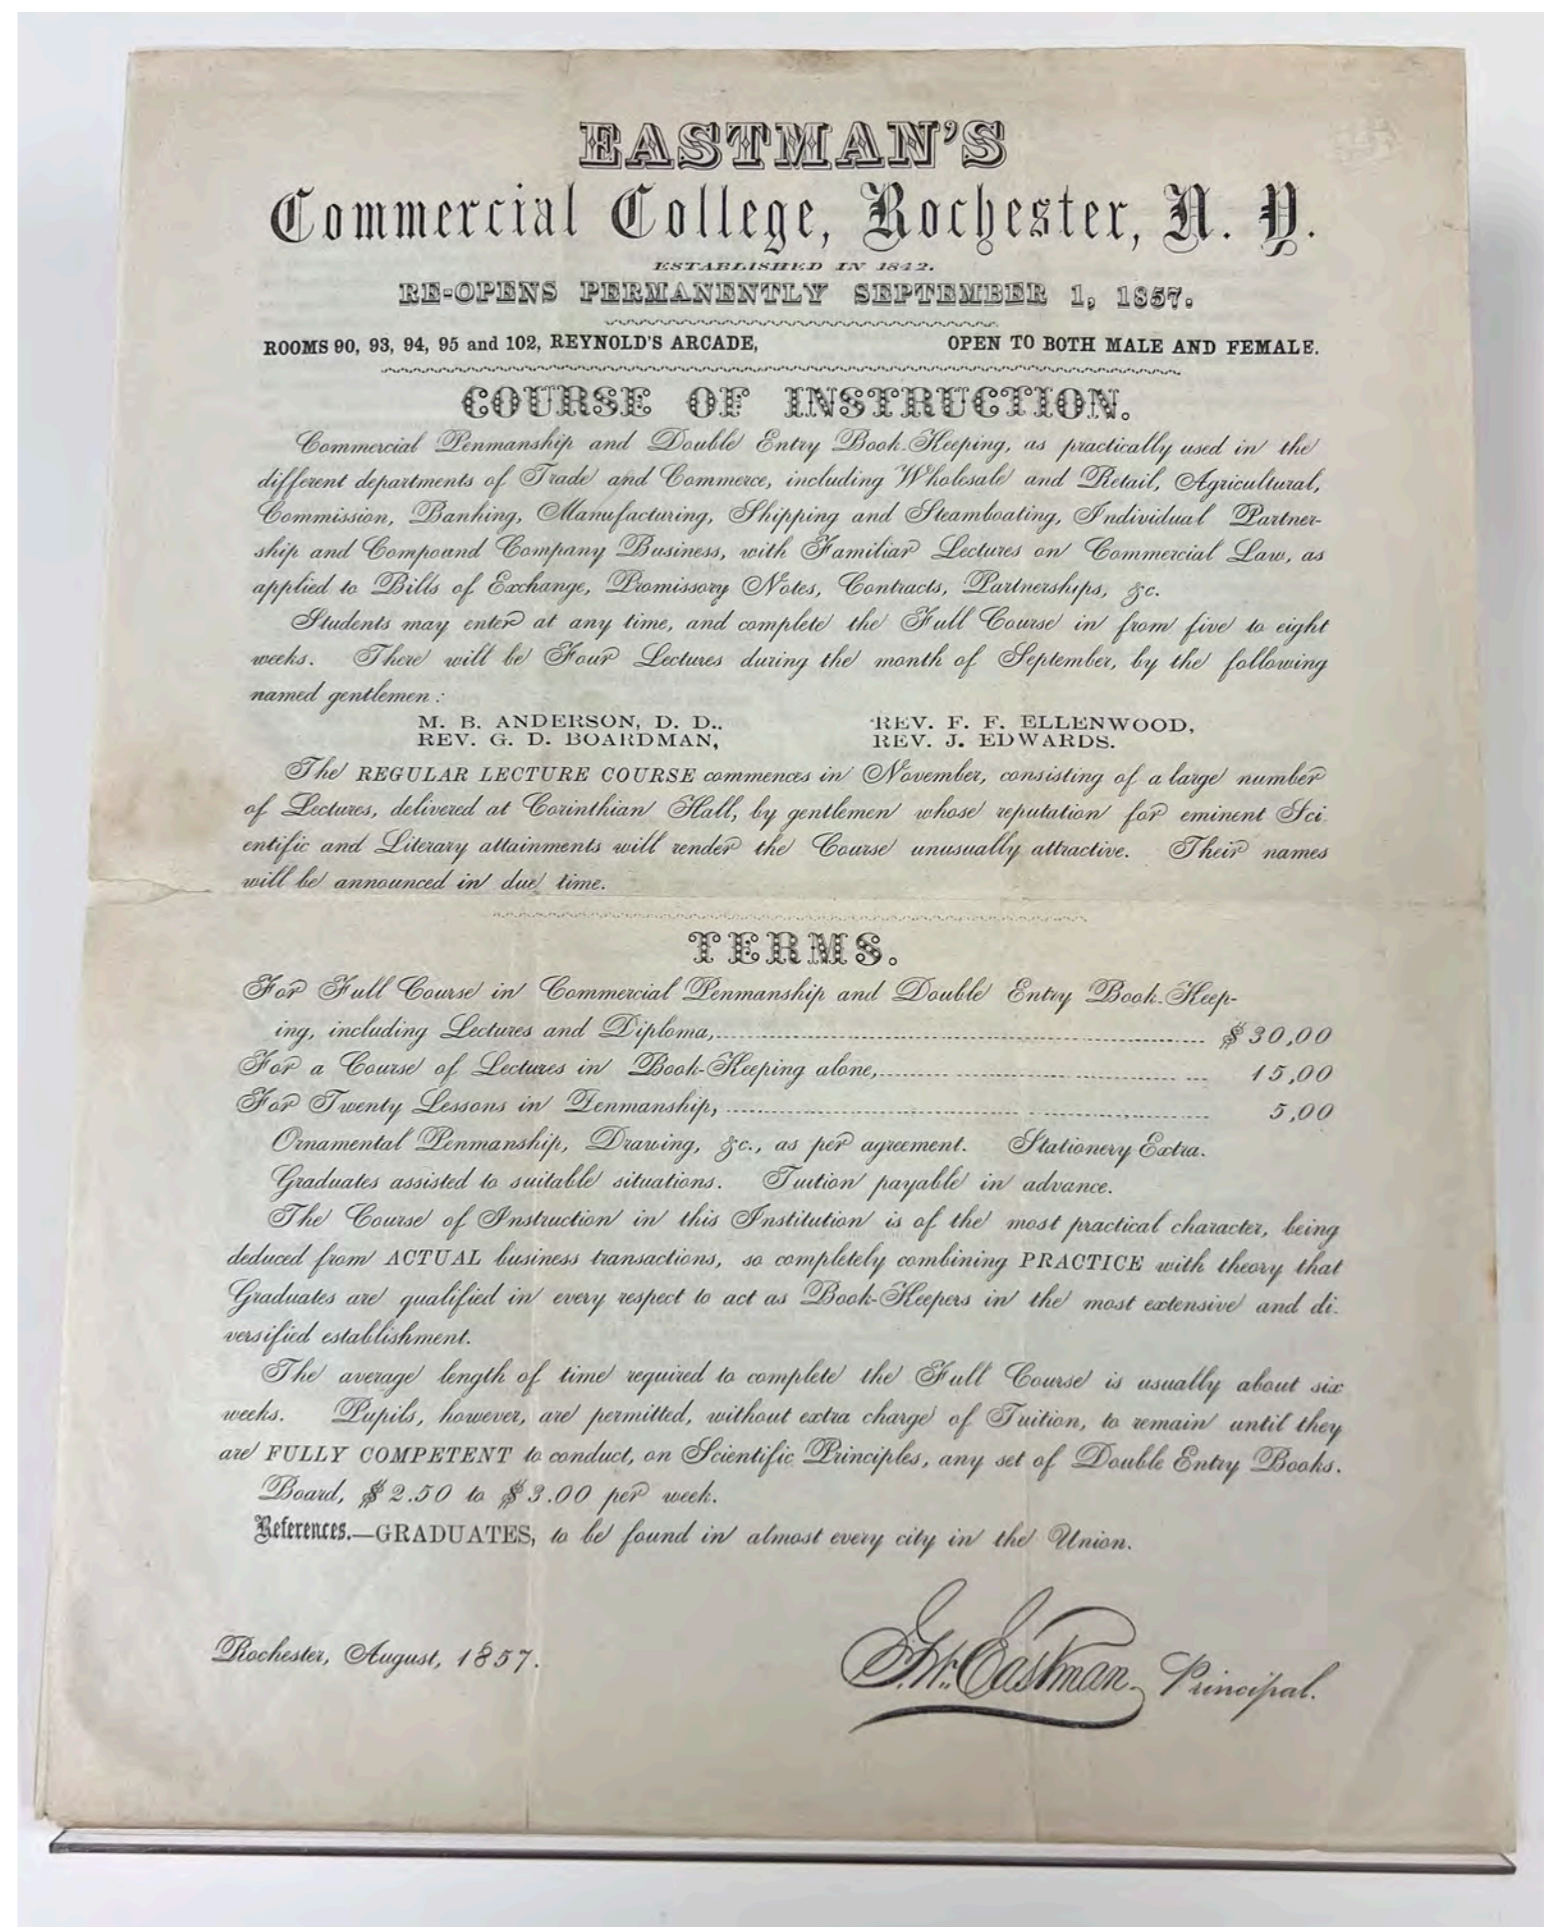 EASTMAN'S
Commercial College, Rochester, N. Y.
ESTABLISHED IN 1842.
RE-OPENS PERMANENTLY SEPTEMBER 1, 1857.
ROOMS 90, 93, 94, 95 and 102, REYNOLD'S ARCADE, OPEN TO BOTH MALE AND FEMALE.
COURSE OF INSTRUCTION.
Commercial Penmanship and Double Entry Book-Keeping, as practically used in the
different departments of Trade and Commerce, including Wholesale and Retail, Agricultural,
Commission, Banking, Manufacturing, Shipping and Steamboating, Individual Partner-
ship and Compound Company Business, with Familiar Lectures on Commercial Law, as
applied to Bills of Exchange, Promissory Notes, Contracts, Partnerships, &c.
Students may enter at any time, and complete the Full Course in from five to eight
weeks. There will be Four Lectures during the month of September, by the following
named gentlemen:
M. B. ANDERSON, D. D., REV. F. F. ELLENWOOD,
REV. G. D. BOARDMAN, REV. J. EDWARDS.
The REGULAR LECTURE COURSE commences in November, consisting of a large number
of Lectures, delivered at Corinthian Hall, by gentlemen whose reputation for eminent Sci-
entific and Literary attainments will render the Course unusually attractive. Their names
will be announced in due time.
TERMS.
For Full Course in Commercial Penmanship and Double Entry Book-Keep-
ing, including Lectures and Diploma, $30,00
For a Course of Lectures in Book-Keeping alone, 15,00
For Twenty Lessons in Penmanship, 5,00
Ornamental Penmanship, Drawing, &c., as per agreement. Stationery Extra.
Graduates assisted to suitable situations. Tuition payable in advance.
The Course of Instruction in this Institution is of the most practical character, being
deduced from ACTUAL business transactions, so completely combining PRACTICE with theory that
Graduates are qualified in every respect to act as Book-Keepers in the most extensive and di-
versified establishment.
The average length of time required to complete the Full Course is usually about six
weeks. Pupils, however, are permitted, without extra charge of Tuition, to remain until they
are FULLY COMPETENT to conduct, on Scientific Principles, any set of Double Entry Books.
Board, $2.50 to $3.00 per week.
References.—GRADUATES, to be found in almost every city in the Union.
Rochester, August, 1857. G. W. Eastman, Principal.